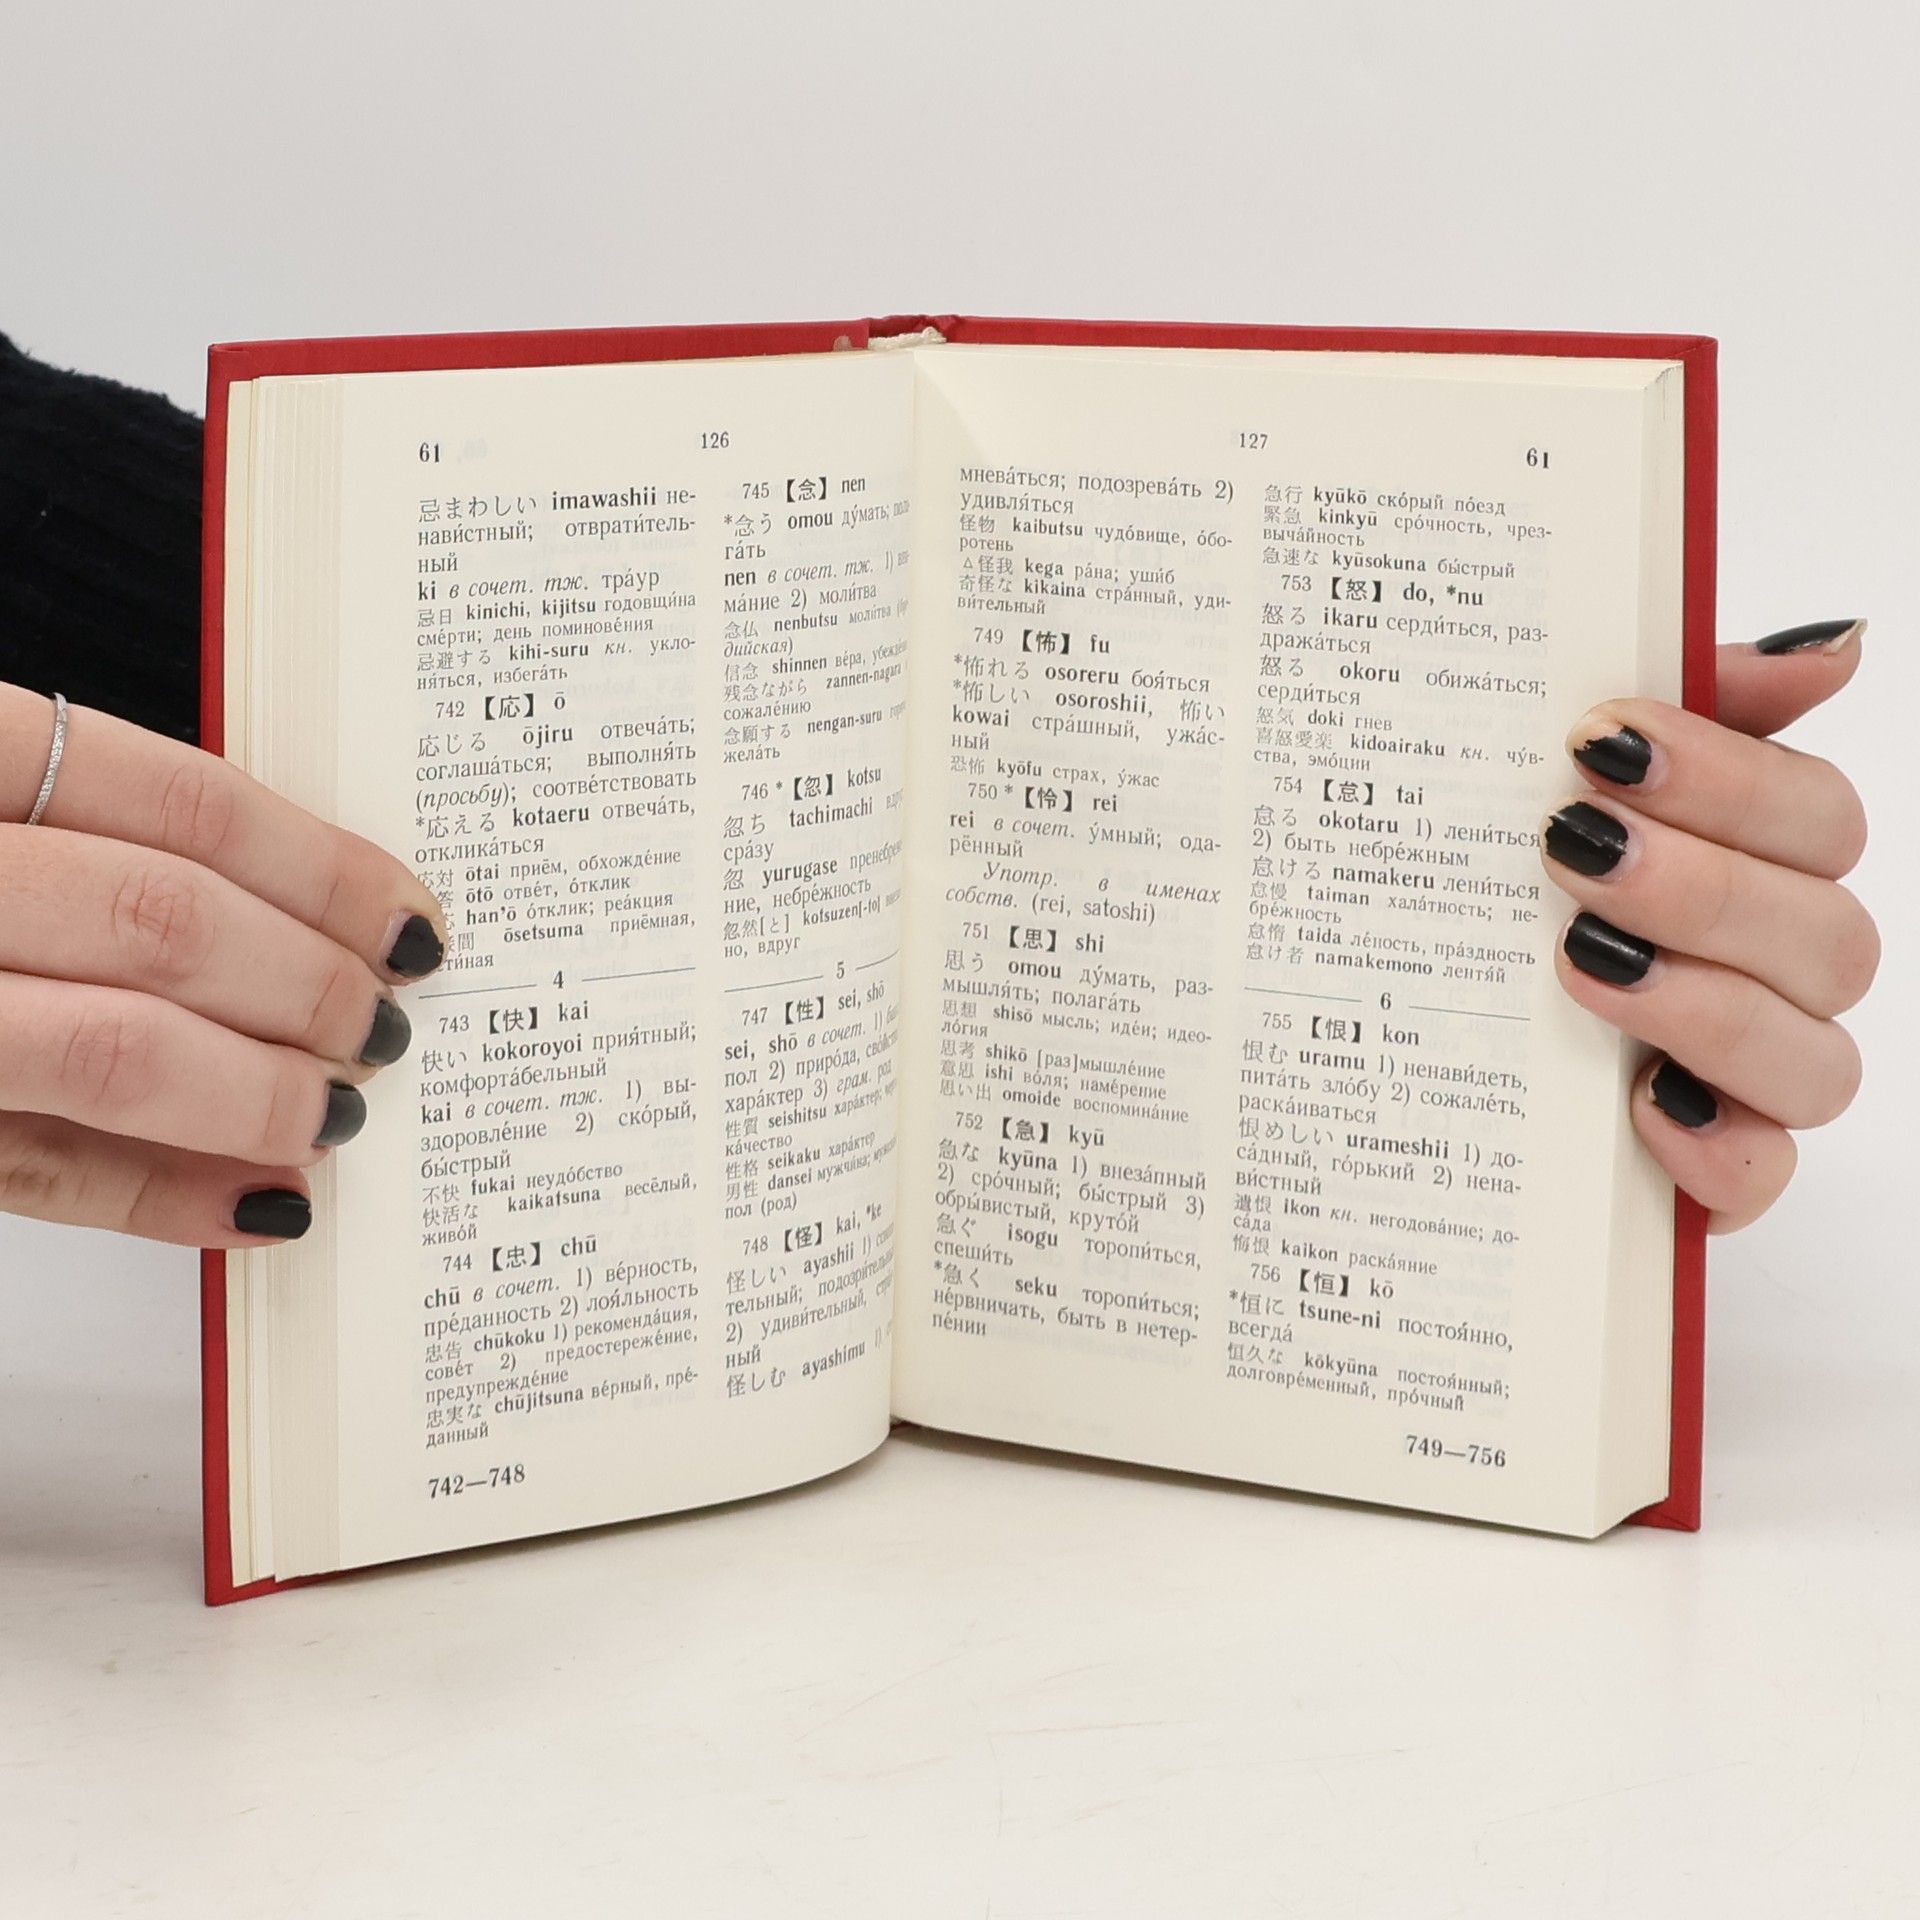 61
126
忌まわしい imawashii не-
нави́стный; отврати́тель-
ный
ki в сочет. тж. тра́ур
忌日 kinichi, kijitsu годовщи́на
сме́рти; день помино́вения
忌避する kihi-suru кн. укло-
ня́ться, избега́ть
742 【応】 ō
応じる ōjiru отвеча́ть;
соглаша́ться; выполня́ть
(просьбу); соотве́тствовать
*応える kotaeru отвеча́ть,
откликáться
応対 ōtai приём, обхожде́ние
答 ōtō отве́т, о́тклик
han'ō о́тклик; реа́кция
間 ōsetsuma приёмная,
сти́ная
4
743 【快】 kai
快い kokoroyoi прия́тный;
комфорта́бельный
kai в сочет. тж. 1) вы-
здоровле́ние 2) ско́рый,
бы́стрый
不快 fukai неудо́бство
快活な kaikatsuna весёлый,
живо́й
744 【忠】 chū
chū в сочет. 1) ве́рность,
пре́данность 2) лоя́льность
忠告 chūkoku 1) рекоменда́ция,
сове́т 2) предостереже́ние,
предупрежде́ние
忠実な chūjitsuna ве́рный, пре́-
данный
742—748
745 【念】 nen
*念う omou ду́мать;
га́ть
nen в сочет. тж. 1)
ма́ние 2) моли́тва
念仏 nenbutsu моли́тва
дийская)
信念 shinnen ве́ра,
残念ながら zannen-nagara
сожале́нию
念願する nengan-suru
жела́ть
746 *【忽】 kotsu
忽ち tachimachi
сра́зу
忽 yurugase
ние, небре́жность
忽然[と] kotsuzen[-to]
но, вдруг
5
747 【性】 sei, shō
sei, shō в сочет. 1)
пол 2) приро́да,
хара́ктер 3) грам. род
性質 seishitsu хара́ктер;
ка́чество
性格 seikaku хара́ктер
男性 dansei мужчи́на;
пол (род)
748 【怪】 kai, *ke
怪しい ayashii 1)
тельный;
2) удиви́тельный,
ный
怪しむ ayashimu
127
61
мнева́ться; подозрева́ть 2)
удивля́ться
怪物 kaibutsu чудо́вище, о́бо-
ротень
△怪我 kega ра́на; уши́б
奇怪な kikaina стра́нный, уди-
ви́тельный
749 【怖】 fu
*怖れる osoreru боя́ться
*怖しい osoroshii, 怖い
kowai стра́шный, ужа́с-
ный
恐怖 kyōfu страх, у́жас
750 *【怜】 rei
rei в сочет. у́мный; ода-
рённый
Употр. в именах
собств. (rei, satoshi)
751 【思】 shi
思う omou ду́мать, раз-
мышля́ть; полага́ть
思想 shisō мысль; иде́и; идео-
ло́гия
思考 shikō [раз]мышле́ние
意思 ishi во́ля; наме́рение
思い出 omoide воспомина́ние
752 【急】 kyū
急な kyūna 1) внеза́пный
2) сро́чный; бы́стрый 3)
обры́вистый, круто́й
急ぐ isogu торопи́ться,
спеши́ть
*急く seku торопи́ться;
не́рвничать, быть в нетер-
пе́нии
急行 kyūkō ско́рый по́езд
緊急 kinkyū сро́чность, чрез-
выча́йность
急速な kyūsokuna бы́стрый
753 【怒】 do, *nu
怒る ikaru серди́ться, раз-
дража́ться
怒る okoru обижа́ться;
серди́ться
怒気 doki гнев
喜怒愛楽 kidoairaku кн. чу́в-
ства, эмо́ции
754 【怠】 tai
怠る okotaru 1) лени́ться
2) быть небре́жным
怠ける namakeru лени́ться
怠慢 taiman хала́тность; не-
бре́жность
怠惰 taida ле́ность, пра́здность
怠け者 namakemono лентя́й
6
755 【恨】 kon
恨む uramu 1) ненави́деть,
пита́ть зло́бу 2) сожале́ть,
раска́иваться
恨めしい urameshii 1) до-
са́дный, го́рький 2) нена-
ви́стный
遺恨 ikon кн. негодова́ние; до-
са́да
悔恨 kaikon раска́яние
756 【恒】 kō
*恒に tsune-ni постоя́нно,
всегда́
恒久な kōkyūna постоя́нный;
долговре́менный, про́чный
749—756